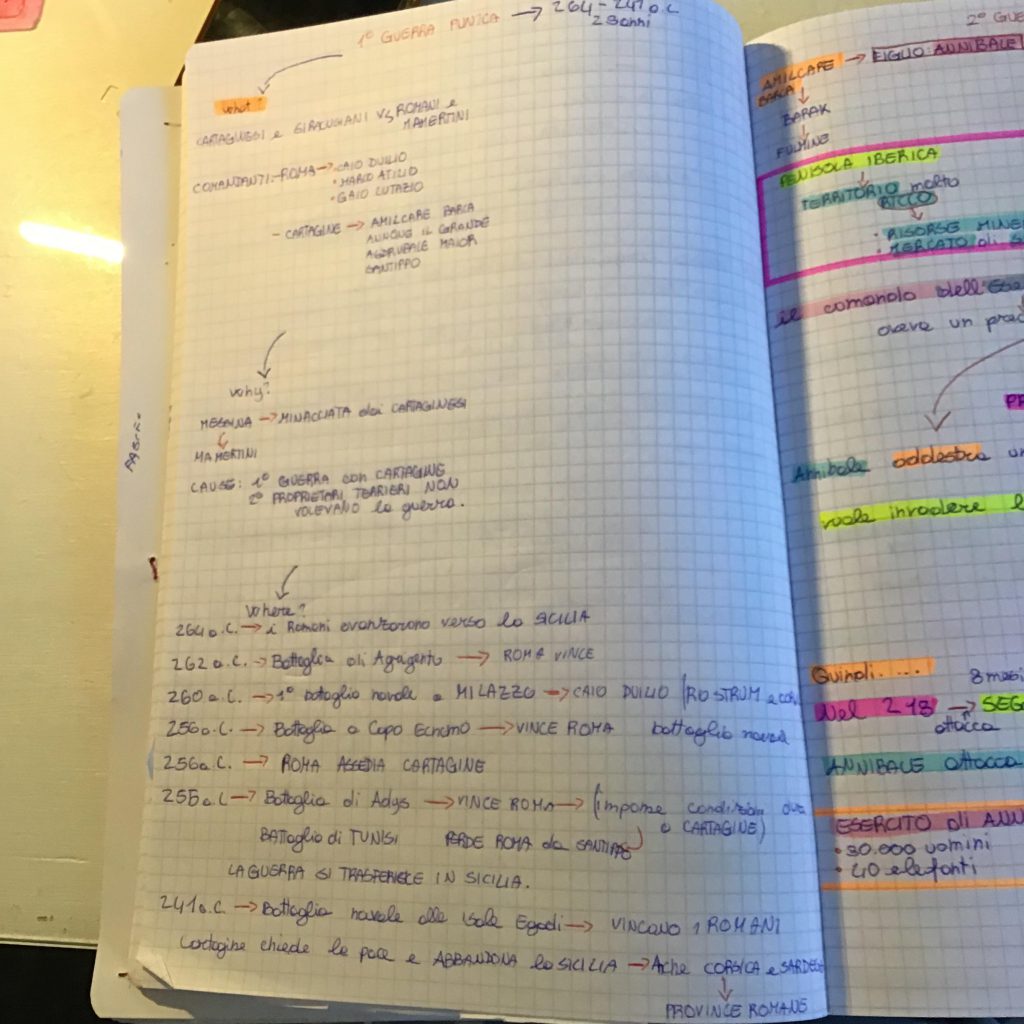 1° GUERRA PUNICA → 264-241 a.C
23 anni
what?
CARTAGINESI e SIRACUSANI VS ROMANI e
MAMERTINI
COMANDANTI: -ROMA → CAIO DUILIO
• MARCO ATILIO
• GAIO LUTAZIO
- CARTAGINE → AMILCARE BARCA
ANNONE IL GRANDE
ASDRUBALE MAIOR
SANTIPPO
why?
MESSINA → MINACCIATA dai CARTAGINESI
MAMERTINI
CAUSE: 1° GUERRA con CARTAGINE
2° PROPRIETARI TERRIERI NON
VOLEVANO la guerra.
where?
264 a.C. → i Romani avanzarono verso la SICILIA
262 a.C. → Battaglia di Agrigento → ROMA VINCE
260 a.C. → 1° battaglia navale a MILAZZO → CAIO DUILIO (ROSTRUM e
256 a.C. → Battaglia a Capo Ecnomo → VINCE ROMA battaglia navale
256 a.C. → ROMA ASSEDIA CARTAGINE
255 a.C → Battaglia di Adys → VINCE ROMA → (impone condizioni dure
a CARTAGINE)
BATTAGLIA di TUNISI PERDE ROMA da SANTIPPO
LA GUERRA SI TRASFERISCE IN SICILIA.
241 a.C → Battaglia navale alle Isole Egadi → VINCONO I ROMANI
Cartagine chiede la pace e ABBANDONA la SICILIA → Anche CORSICA e
PROVINCE ROMANE
2° GUE
AMILCARE → FIGLIO: ANNIBALE
BARCA
BARAK
FULMINE
PENISOLA IBERICA
TERRITORIO molto
RICCO
• RISORSE MINE
• MERCATO di
il comando dell'Ese
aveva un
Annibale addestra un
vuole invadere
Quindi.... 8 mesi
Nel 218 →
attacca
ANNIBALE attacca
ESERCITO di ANN
• 30.000 uomini
• 40 elefanti